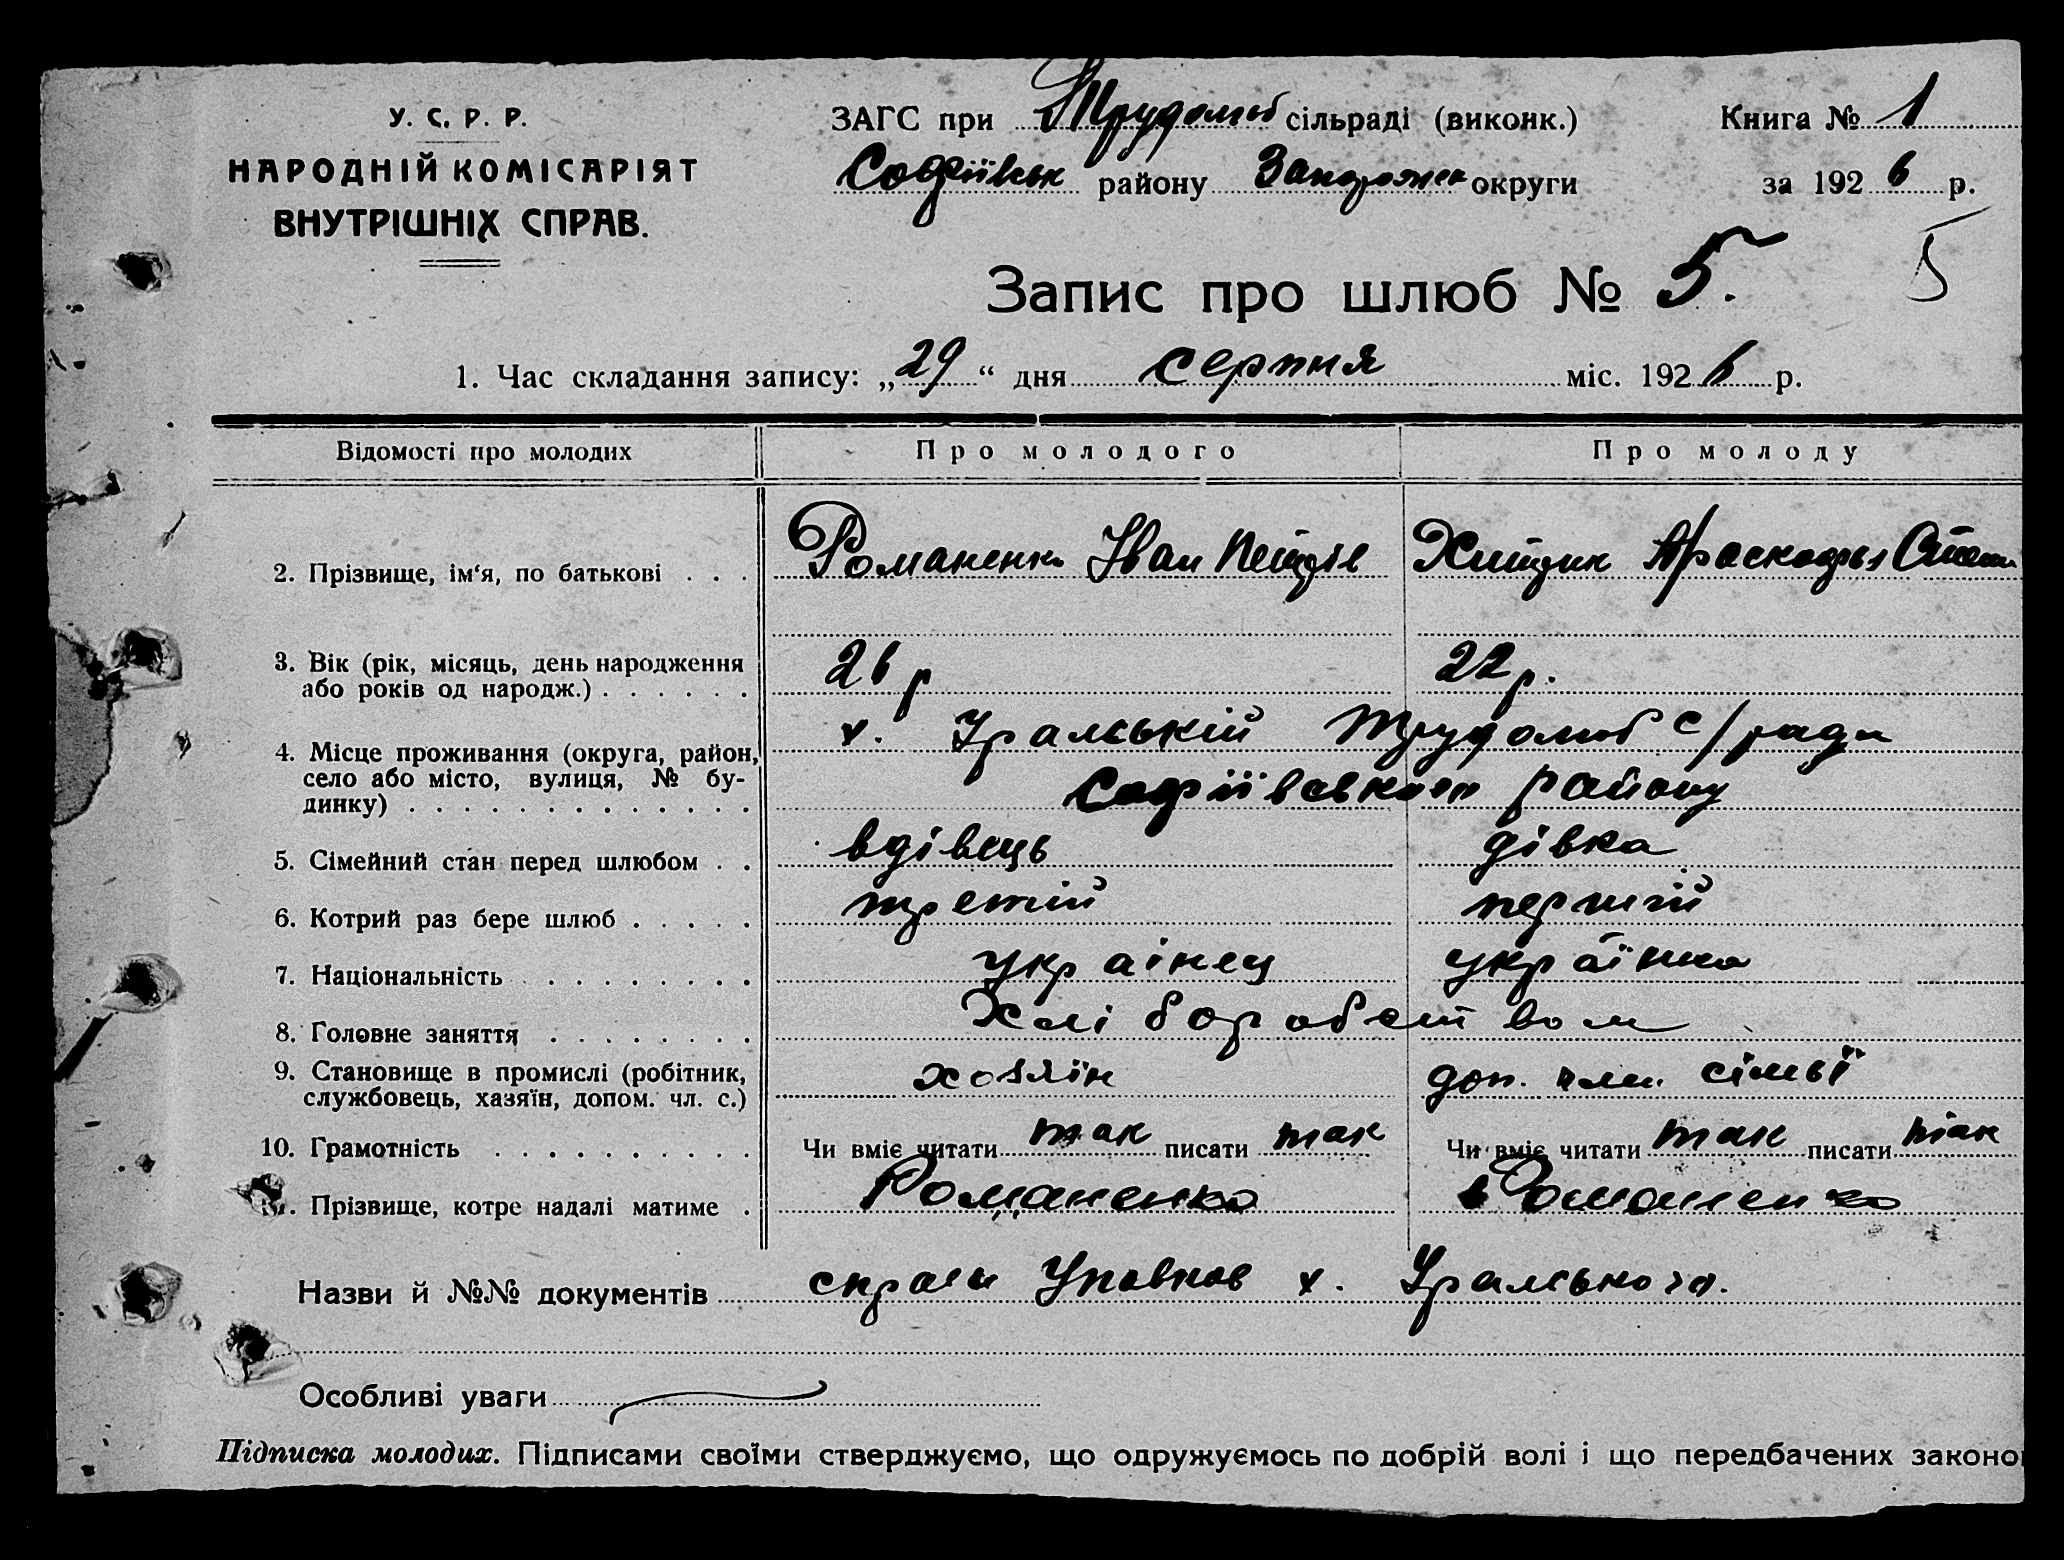 У. С. Р. Р.
НАРОДНІЙ КОМІСАРІЯТ
ВНУТРІШНІХ СПРАВ.
ЗАГС при Трудолюб сільраді (виконк.)
Софіївськ району Запорожск округи
Книга № 1
за 1926 р.
Запис про шлюб № 5.
5
1. Час складання запису: „29“ дня серпня міс. 1926 р.
Відомості про молодих
Про молодого
Про молоду
2. Прізвище, ім‘я, по батькові . . .
Романенко Іван
Параскофья Степ
3. Вік (рік, місяць, день народження
або років од народж.) . . . . . .
26 р
22 р.
4. Місце проживання (округа, район,
село або місто, вулиця, № бу-
динку) . . . . . . . . . . . . .
х. Уральській Трудолюб с/ради
Софіївського району
5. Сімейний стан перед шлюбом . .
вдівець
дівка
6. Котрий раз бере шлюб . . . . .
третій
перший
7. Національність . . . . . . . .
українец
українка
8. Головне заняття . . . . . . . .
Хліборобством
9. Становище в промислі (робітник,
службовець, хазяїн, допом. чл. с.)
хозяїн
доп. член. сімьї
10. Грамотність . . . . . . . . . .
Чи вміє читати так писати так
Чи вміє читати так писати так
11. Прізвище, котре надалі матиме .
Романенко
Романенко
Назви й №№ документів х. Уральского.
Особливі уваги
Підписка молодих. Підписами своїми стверджуємо, що одружуємось по добрій волі і що передбачених законо